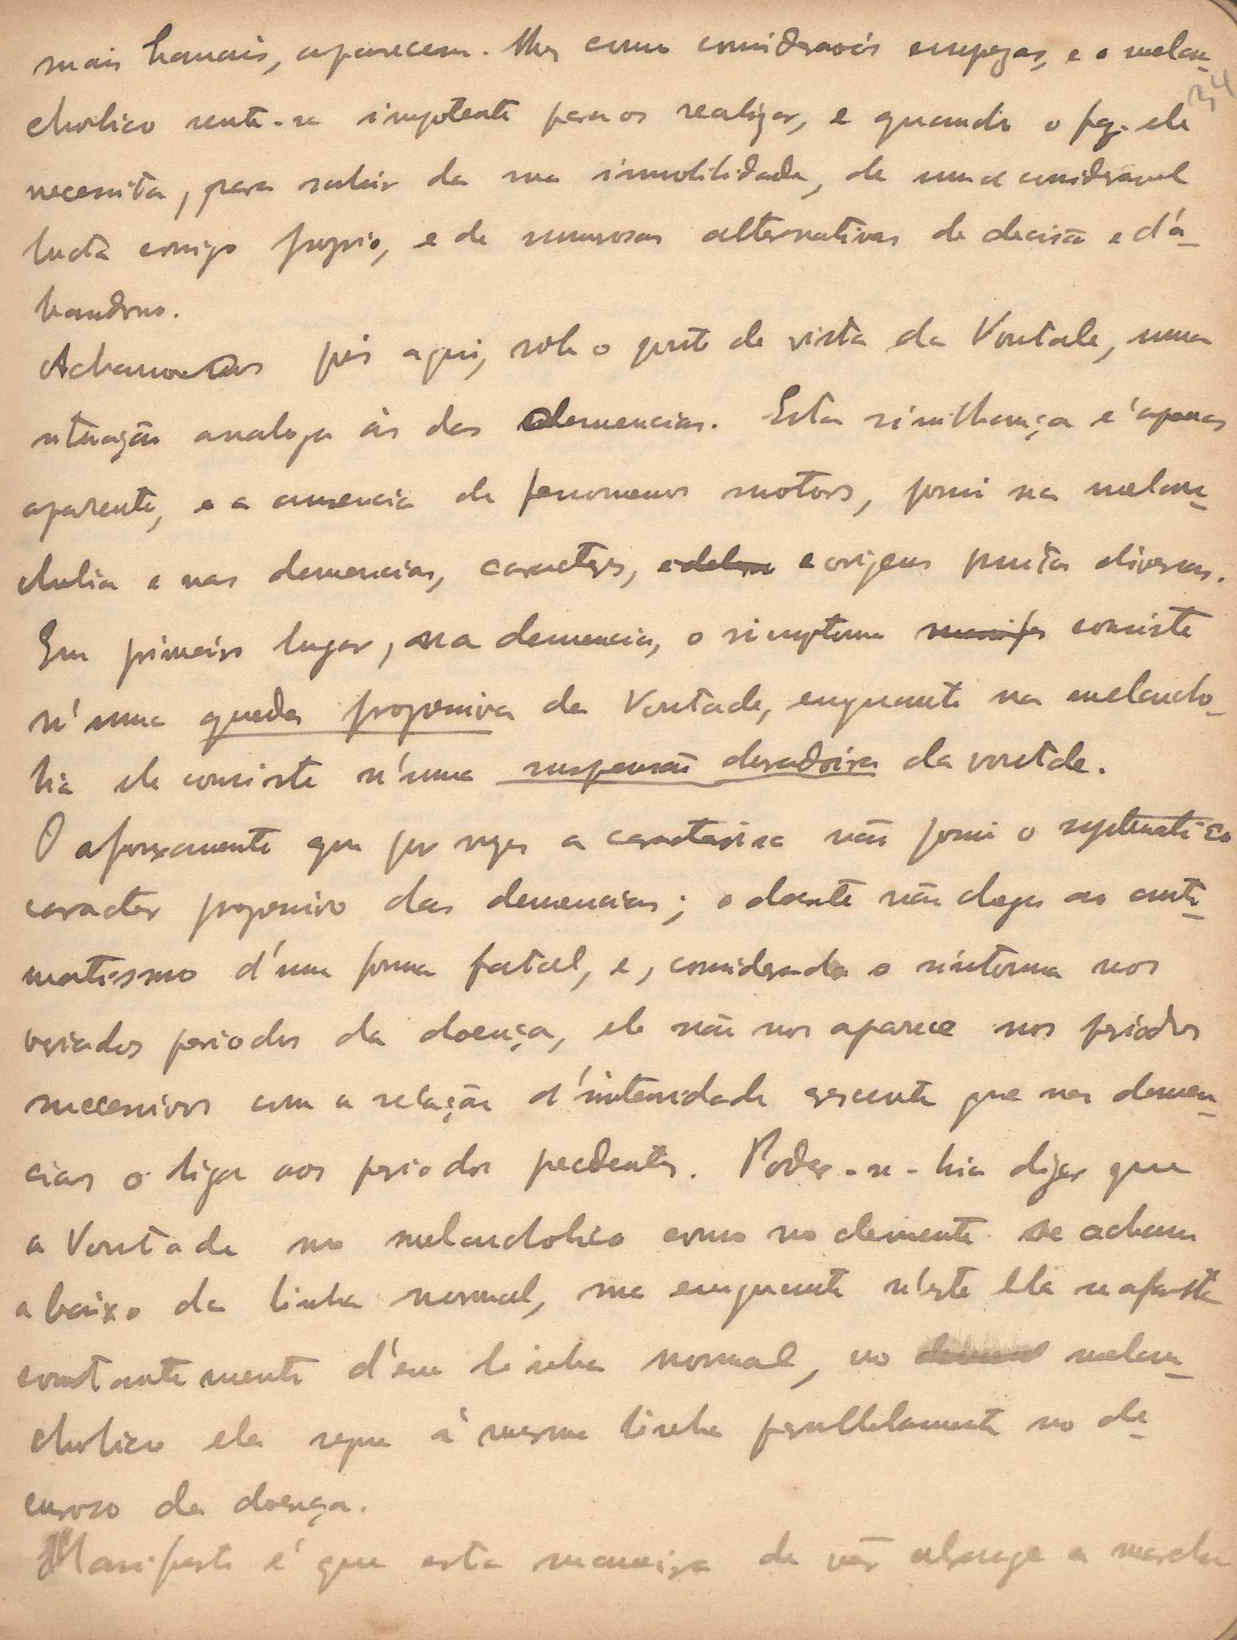 mais banais, aparecem-lhes como consideraveis emprezas, e o melan-
34
cholico sente-se impotente para os realizar, e quando o faz, ele
necessita, para sahir da sua immobilidade, de uma consideravel
lucta comsigo proprio, e de numerosas alternativas de decisão e d'a-
bandono.
Achamo-nos pois aqui, sob o ponto de vista da Vontade, numa
situação analoga ás das demencias. Esta similhança é apenas
aparente, e a ausencia de fenomenos motores, possui na melan-
cholia e nas demencias, caracteres, e origens muito diversas.
Em primeiro lugar, na demencia, o simptoma consiste
n'uma queda progressiva da Vontade, emquanto na melancho-
lia ele consiste n'uma suspensão duradoira da vontade.
O afrouxamento que por vezes a caracterisa não possui o systematico
caracter progressivo das demencias; o doente não chega ao auto-
matismo d'uma forma fatal, e, considerado o sintoma nos
variados periodos da doença, ele não nos aparece nos periodos
successivos com a relação d'intensidade crescente que nas demen-
cias o liga aos periodos precedentes. Poder-se-hia dizer que
a Vontade no melancholico como no demente se acham
abaixo da linha normal, mas emquanto n'este ella se afasta
constantemente d'essa linha normal, no melan-
cholico ela segue a mesma linha parallelamente no de-
curso da doença.
Manifesto é que esta maneira de vêr abrange a marcha